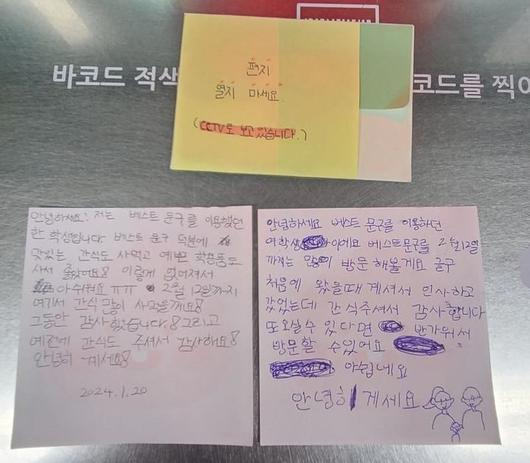 바코드 적색
코드를 찍어
편지
열지 마세요.
(CCTV로 보고 있습니다.)
안녕하세요! 저는 베스트 문구를 이용했던
한 학생입니다. 베스트 문구 덕분에
맛있는 간식도 사먹고 예쁜 학용품도
사서 좋았어요! 이렇게 없어져서
아쉬워요 ㅠㅠ 2월 12일까지
여기서 간식 많이 사먹을게요!
그동안 감사했습니다! 그리고
예전에 간식도 주셔서 감사해요!
안녕히 계세요!
2024.1.20
안녕하세요 베스트 문구를 이용하던
여학생 이에요 베스트문구를 2월12일
까지는 많이 방문 해볼게요 문구
처음에 왔을때 계셔서 인사하고
갔었는데 간식주셔서 감사합니다
또오실수 있다면 반가워서
방문할 수있어요
아쉽네요
안녕히 계세요